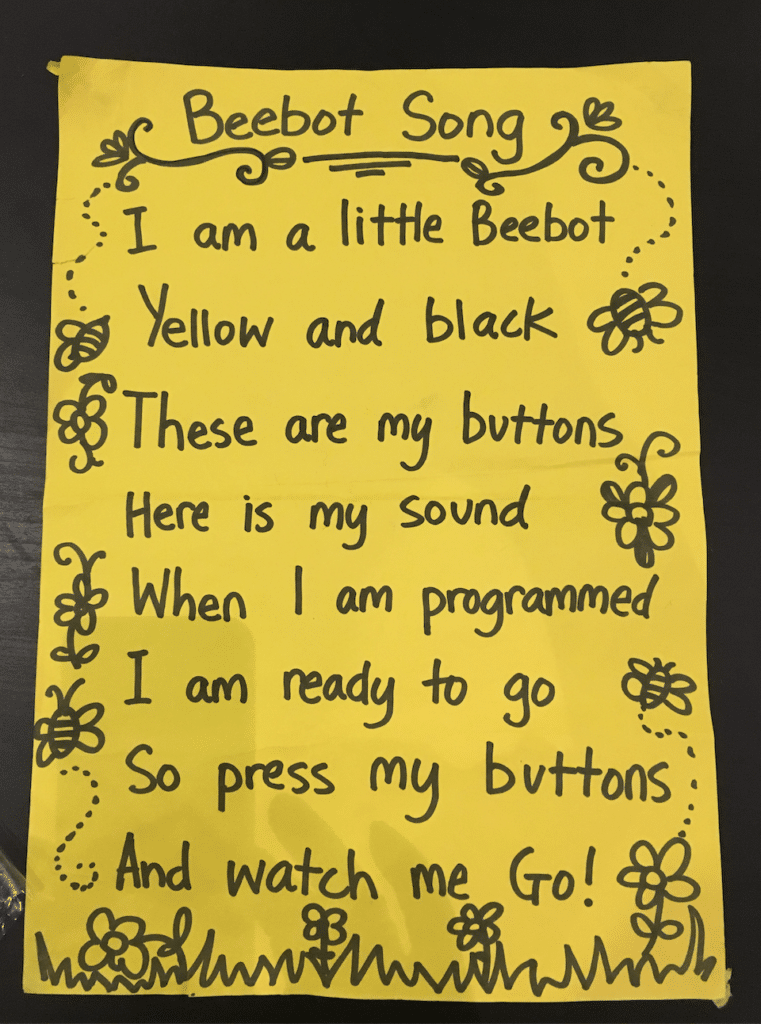 Beebot Song
I am a little Beebot
Yellow and black
These are my buttons
Here is my sound
When I am programmed
I am ready to go
So press my buttons
And watch me Go!